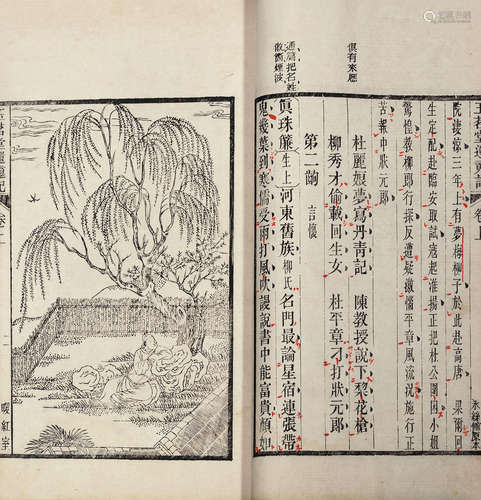 玉茗堂還魂記 卷上
院淒涼三年上有夢梅柳子於此赴高唐 果爾回
生定配赴臨安取試寇起淮揚正把杜公圍困小姐
驚惶教柳郎行探反遭疑激惱平章風流況施行正
苦報中狀元郎
杜麗娘夢寫丹青記 陳教授說下梨花槍
柳秀才偷載回生女 杜平章刁打狀元郎
第二齣 言懷
眞珠簾 生上 河東舊族柳氏名門最論星宿連張帶
鬼幾葉到寒儒受雨打風吹謾說書中能富貴顏如
俱有來歷
通篇把名姓
玉茗堂還魂記 卷上 二 暖紅室